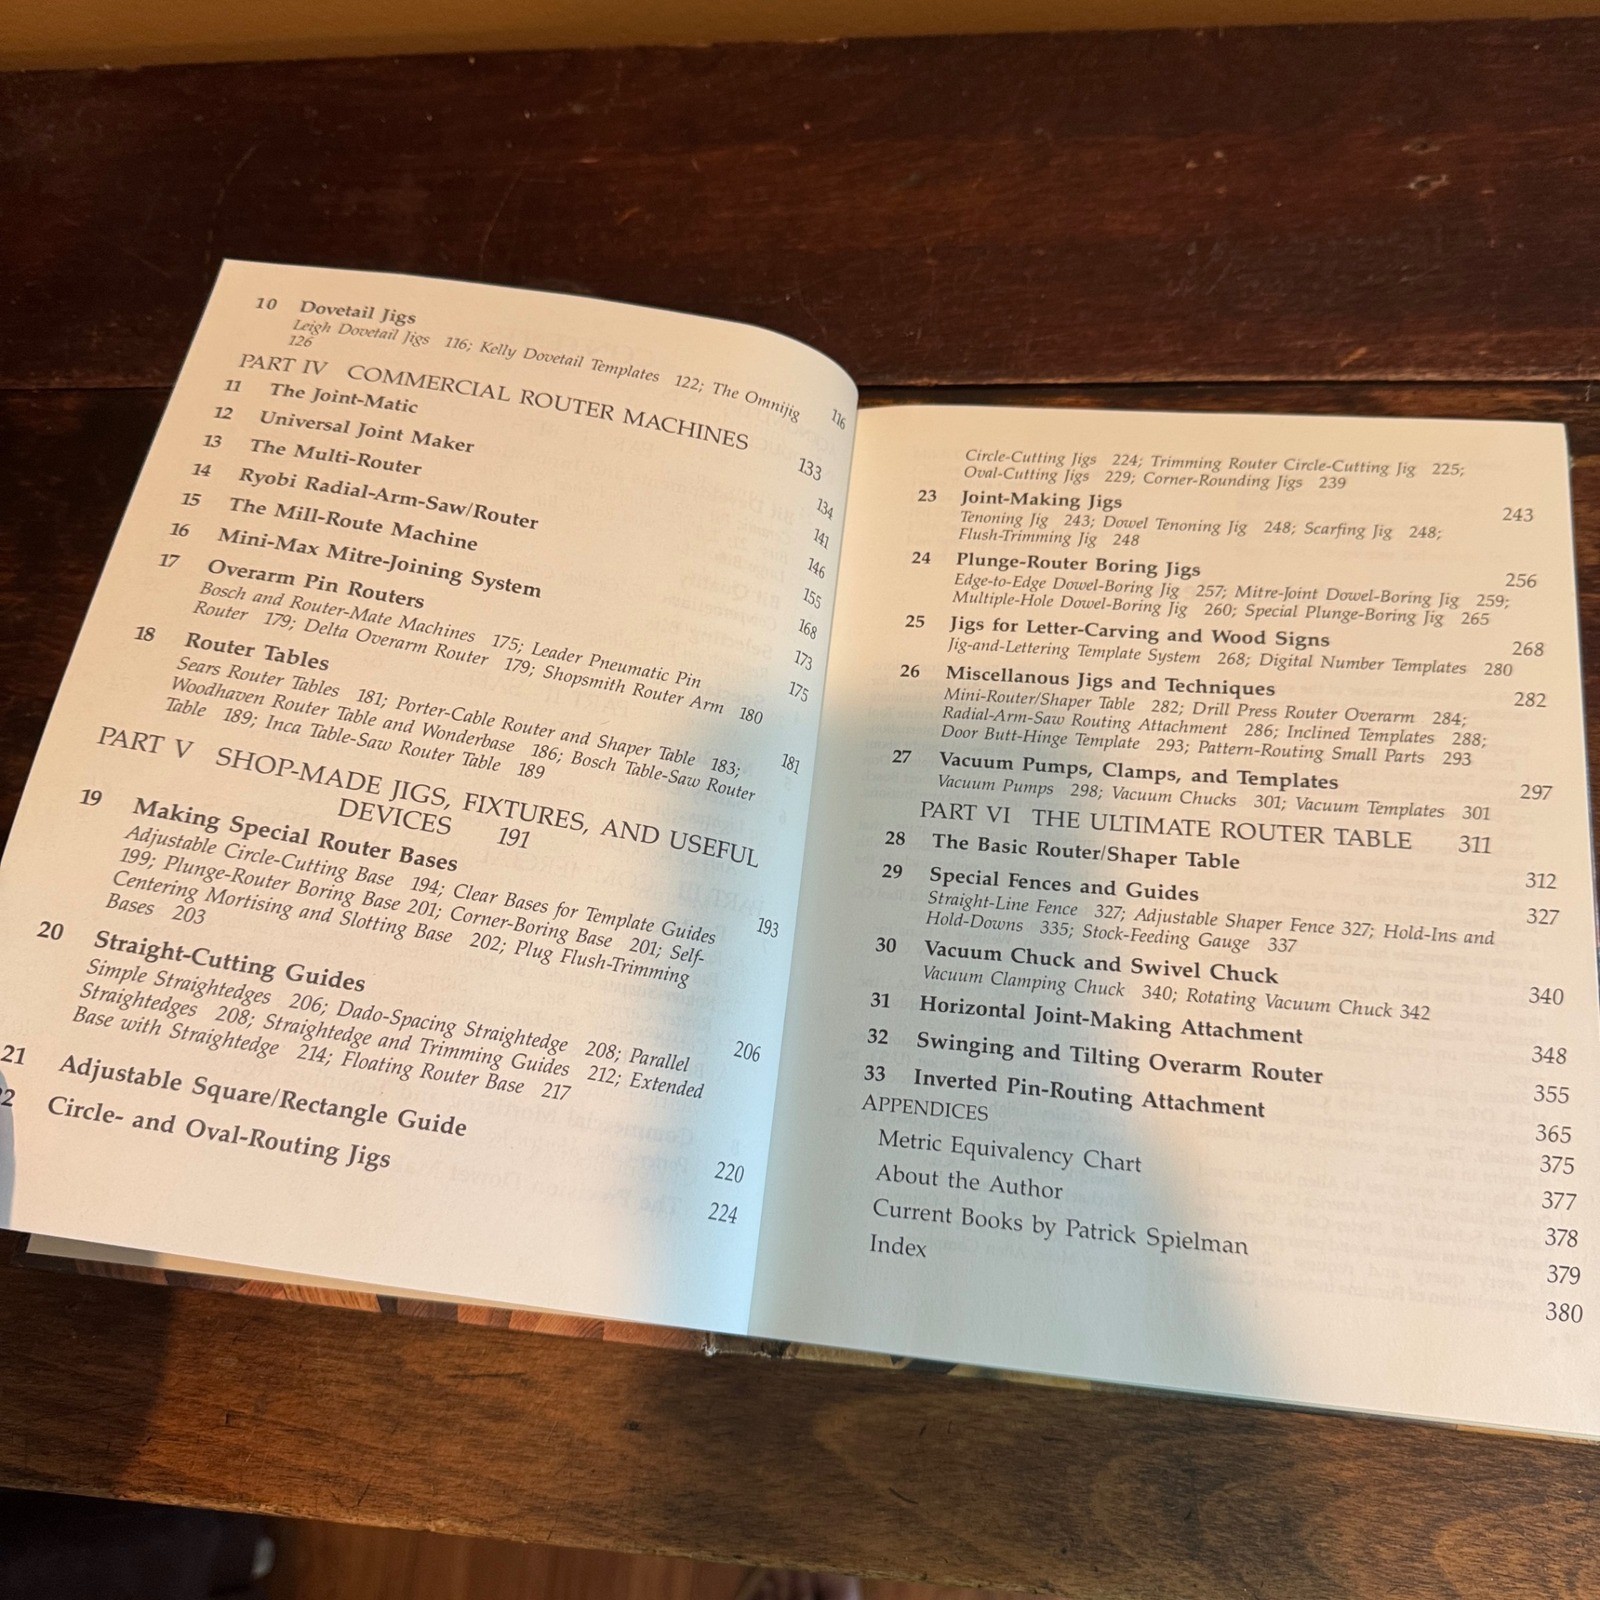 10 Dovetail Jigs 116
Leigh Dovetail Jigs 116; Kelly Dovetail Templates 122; The Omnijig
126
PART IV COMMERCIAL ROUTER MACHINES 133
11 The Joint-Matic 134
12 Universal Joint Maker 141
13 The Multi-Router 146
14 Ryobi Radial-Arm-Saw/Router 155
15 The Mill-Route Machine 168
16 Mini-Max Mitre-Joining System 173
17 Overarm Pin Routers 175
Bosch and Router-Mate Machines 175; Leader Pneumatic Pin
Router 179; Delta Overarm Router 179; Shopsmith Router Arm 180
18 Router Tables 181
Sears Router Tables 181; Porter-Cable Router and Shaper Table 183;
Woodhaven Router Table and Wonderbase 186; Bosch Table-Saw Router
Table 189; Inca Table-Saw Router Table 189
PART V SHOP-MADE JIGS, FIXTURES, AND USEFUL
DEVICES 191
19 Making Special Router Bases 193
Adjustable Circle-Cutting Base 194; Clear Bases for Template Guides
199; Plunge-Router Boring Base 201; Corner-Boring Base 201; Self-
Centering Mortising and Slotting Base 202; Plug Flush-Trimming
Bases 203
20 Straight-Cutting Guides 206
Simple Straightedges 206; Dado-Spacing Straightedge 208; Parallel
Straightedges 208; Straightedge and Trimming Guides 212; Extended
Base with Straightedge 214; Floating Router Base 217
21 Adjustable Square/Rectangle Guide 220
2 Circle- and Oval-Routing Jigs 224
Circle-Cutting Jigs 224; Trimming Router Circle-Cutting Jig 225;
Oval-Cutting Jigs 229; Corner-Rounding Jigs 239
23 Joint-Making Jigs 243
Tenoning Jig 243; Dowel Tenoning Jig 248; Scarfing Jig 248;
Flush-Trimming Jig 248
24 Plunge-Router Boring Jigs 256
Edge-to-Edge Dowel-Boring Jig 257; Mitre-Joint Dowel-Boring Jig 259;
Multiple-Hole Dowel-Boring Jig 260; Special Plunge-Boring Jig 265
25 Jigs for Letter-Carving and Wood Signs 268
Jig-and-Lettering Template System 268; Digital Number Templates 280
26 Miscellanous Jigs and Techniques 282
Mini-Router/Shaper Table 282; Drill Press Router Overarm 284;
Radial-Arm-Saw Routing Attachment 286; Inclined Templates 288;
Door Butt-Hinge Template 293; Pattern-Routing Small Parts 293
27 Vacuum Pumps, Clamps, and Templates 297
Vacuum Pumps 298; Vacuum Chucks 301; Vacuum Templates 301
PART VI THE ULTIMATE ROUTER TABLE 311
28 The Basic Router/Shaper Table 312
29 Special Fences and Guides 327
Straight-Line Fence 327; Adjustable Shaper Fence 327; Hold-Ins and
Hold-Downs 335; Stock-Feeding Gauge 337
30 Vacuum Chuck and Swivel Chuck 340
Vacuum Clamping Chuck 340; Rotating Vacuum Chuck 342
31 Horizontal Joint-Making Attachment 348
32 Swinging and Tilting Overarm Router 355
33 Inverted Pin-Routing Attachment 365
APPENDICES 375
Metric Equivalency Chart 377
About the Author 378
Current Books by Patrick Spielman 379
Index 380